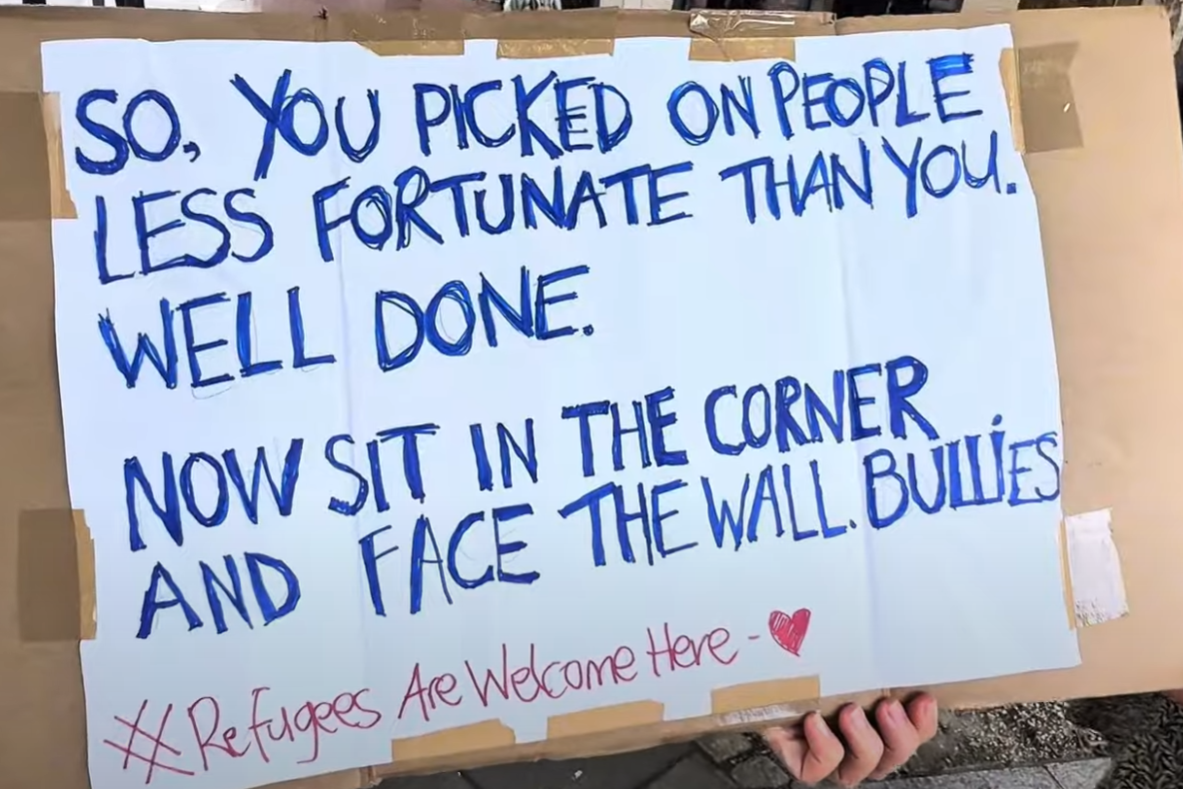 SO, YOU PICKED ON PEOPLE
LESS FORTUNATE THAN YOU.
WELL DONE.
NOW SIT IN THE CORNER
AND FACE THE WALL. BULLiES
#Refugees Are Welcome Here - ♥